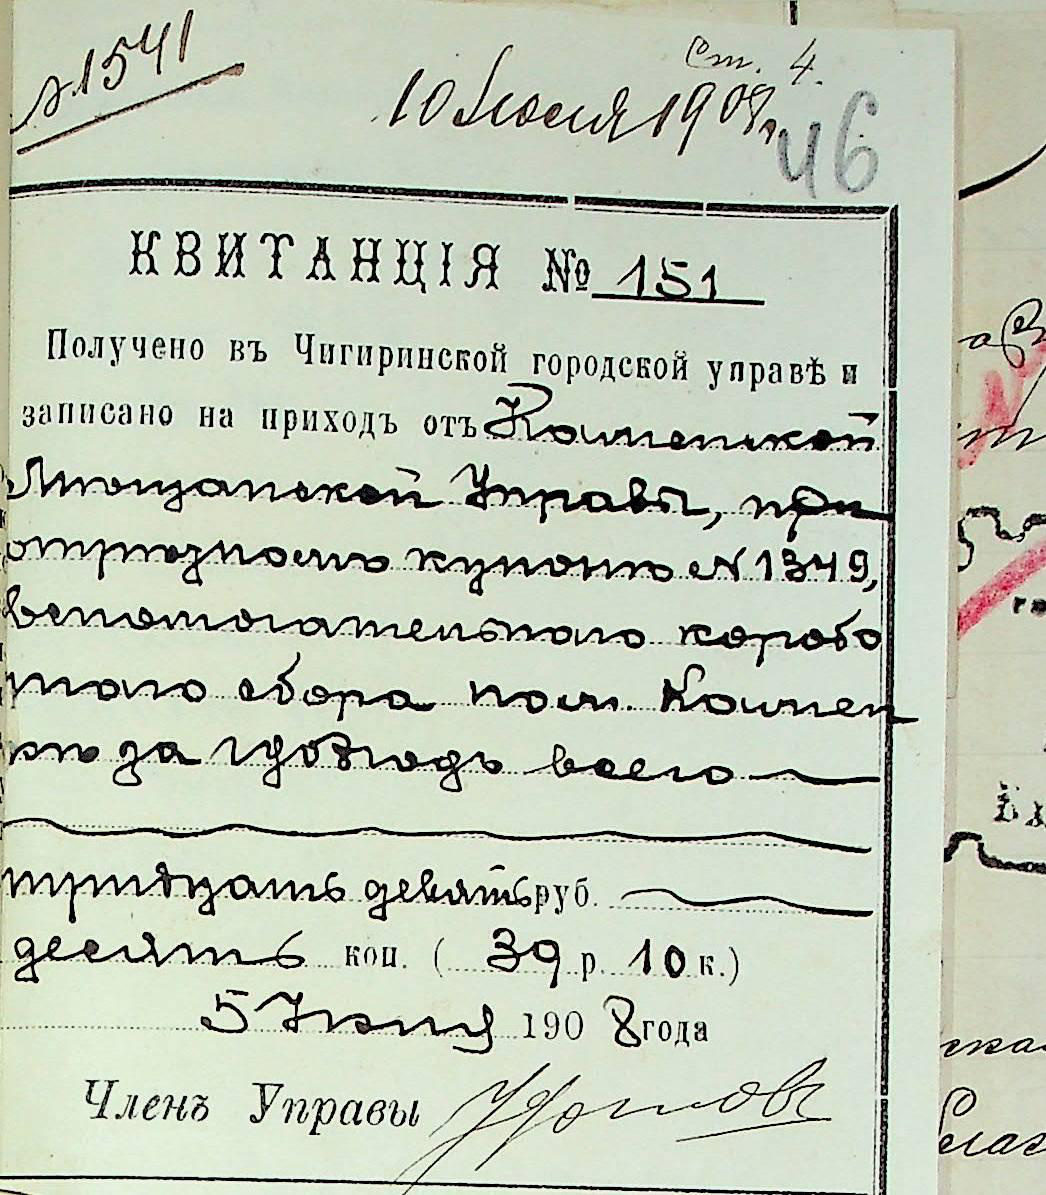 №1541
Ст. 4.
10 Июня 1908 г.
46
КВИТАНЦІЯ № 151
Получено въ Чигиринской городской управѣ и
записано на приходъ отъ Каменской
Мѣщанской Управы, при
отрѣзномъ купонѣ № 1349,
вспомогательнаго коробо
чнаго сбора пом. Камен
кѣ за годъ всего
тридцать девять руб.
десять коп. ( 39 р. 10 к.)
5 Іюня 190 8 года
Членъ Управы